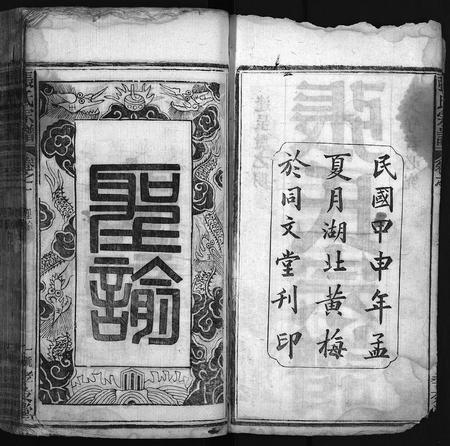 民國甲申年孟
夏月湖北黃梅
於同文堂刊印
聖諭